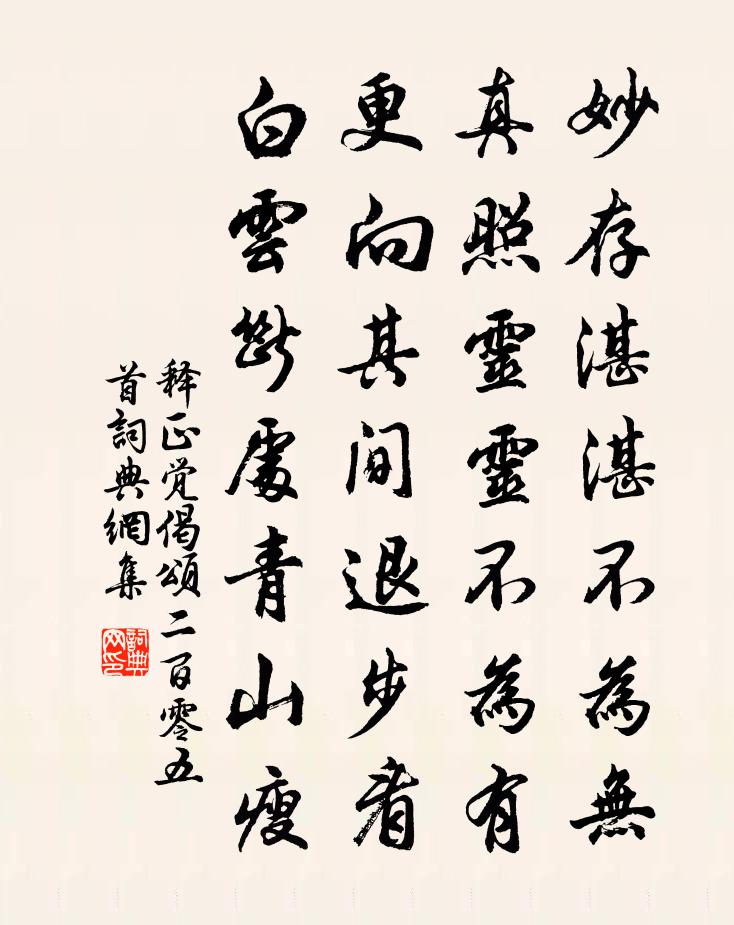 妙存湛湛不為無
真照靈靈不為有
更向其間退步看
白雲斷處青山瘦
释正觉偈頌二百零五
首詞典網集
詞典网印